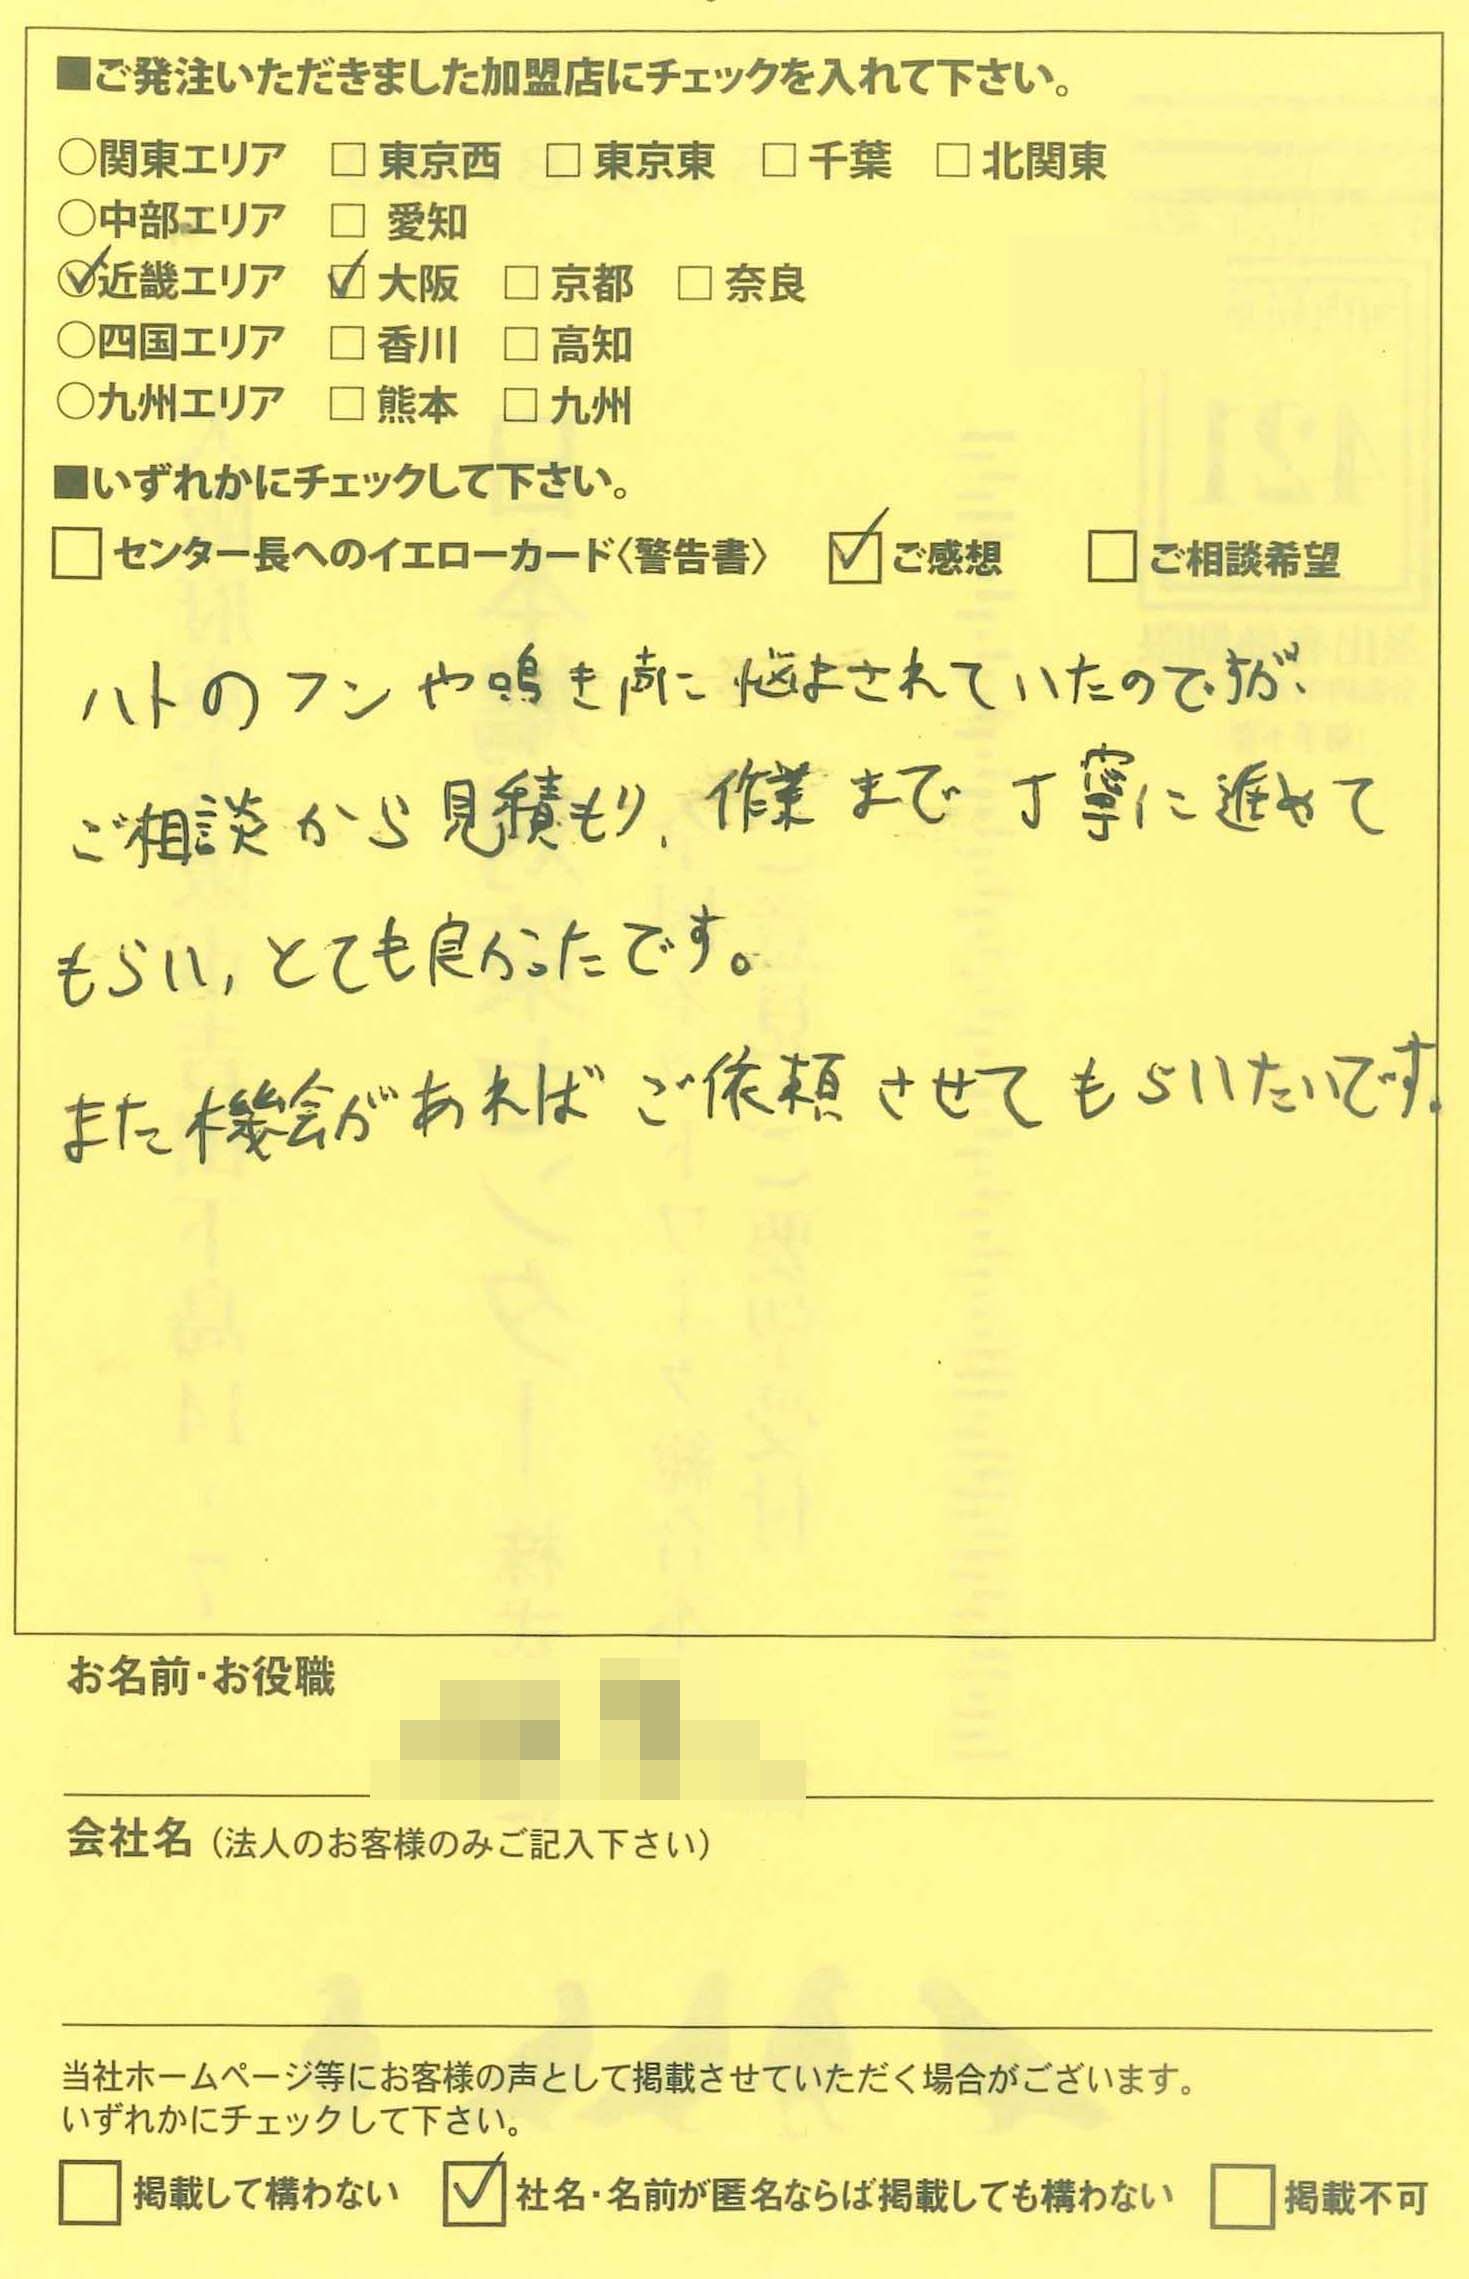 ■ご発注いただきました加盟店にチェックを入れて下さい。
○関東エリア □ 東京西 □ 東京東 □ 千葉 □ 北関東
○中部エリア □ 愛知
○近畿エリア ☑ 大阪 □ 京都 □ 奈良
○四国エリア □ 香川 □ 高知
○九州エリア □ 熊本 □ 九州
■いずれかにチェックして下さい。
□ センター長へのイエローカード〈警告書〉 ☑ ご感想 □ ご相談希望
ハトのフンや鳴き声に悩まされていたのですが、
ご相談から見積もり、作業まで丁寧に進めて
もらい、とても良かったです。
また機会があればご依頼させてもらいたいです。
お名前・お役職
会社名（法人のお客様のみご記入下さい）
当社ホームページ等にお客様の声として掲載させていただく場合がございます。
いずれかにチェックして下さい。
□ 掲載して構わない ☑ 社名・名前が匿名ならば掲載しても構わない □ 掲載不可